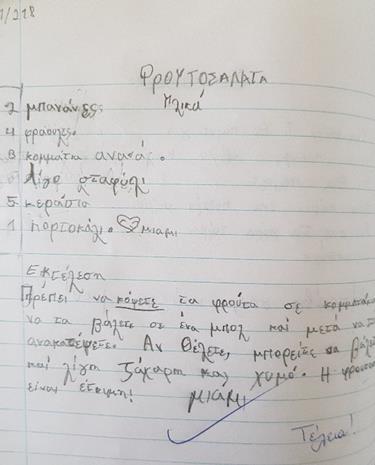 1/218
ΦΡΟΥΤΟΣΑΛΑΤΑ
Υλικά
2 μπανάνες.
4 φράουλες.
8 κομμάτια ανανά.
Λίγο σταφύλι
5 κεράσια
1 πορτοκάλι. μιαμι
Εκτέλεση
Πρέπει να κόψετε τα φρούτα σε κομματάκια
να τα βάλετε σε ένα μπολ και μετα να τα
ανακατέψετε. Αν θέλετε, μπορείτε να βάλετε
και λίγη ζάχαρη και χυμό. Η φρουτοσ
είναι έτοιμη! μιάμι
Τέλεια!